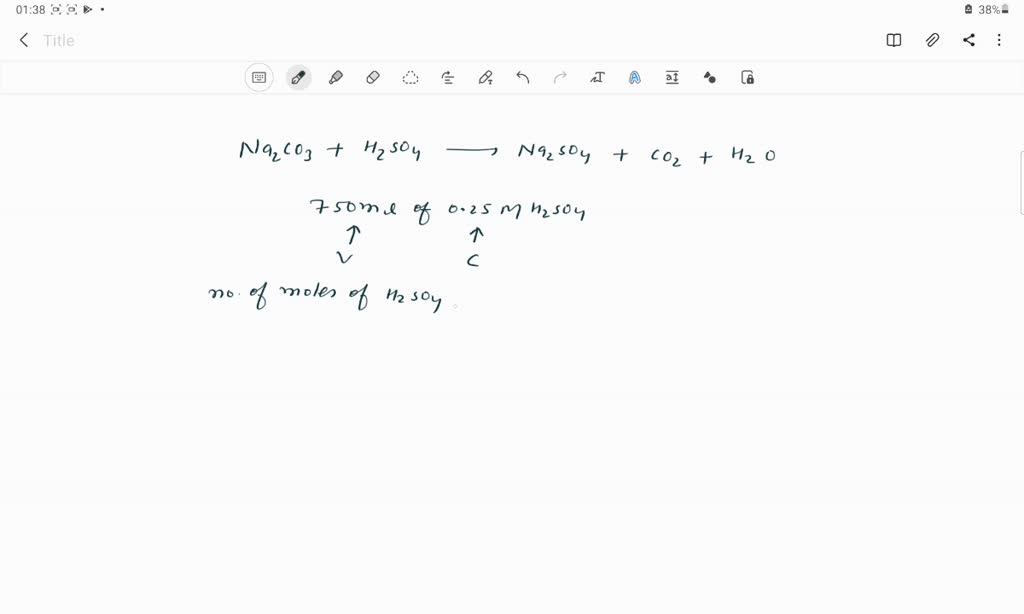 01:38 38%
Title
Na2CO3 + H2SO4 → Na2SO4 + CO2 + H2O
750ml of 0.25 M H2SO4
↑ ↑
V C
no. of moles of H2SO4